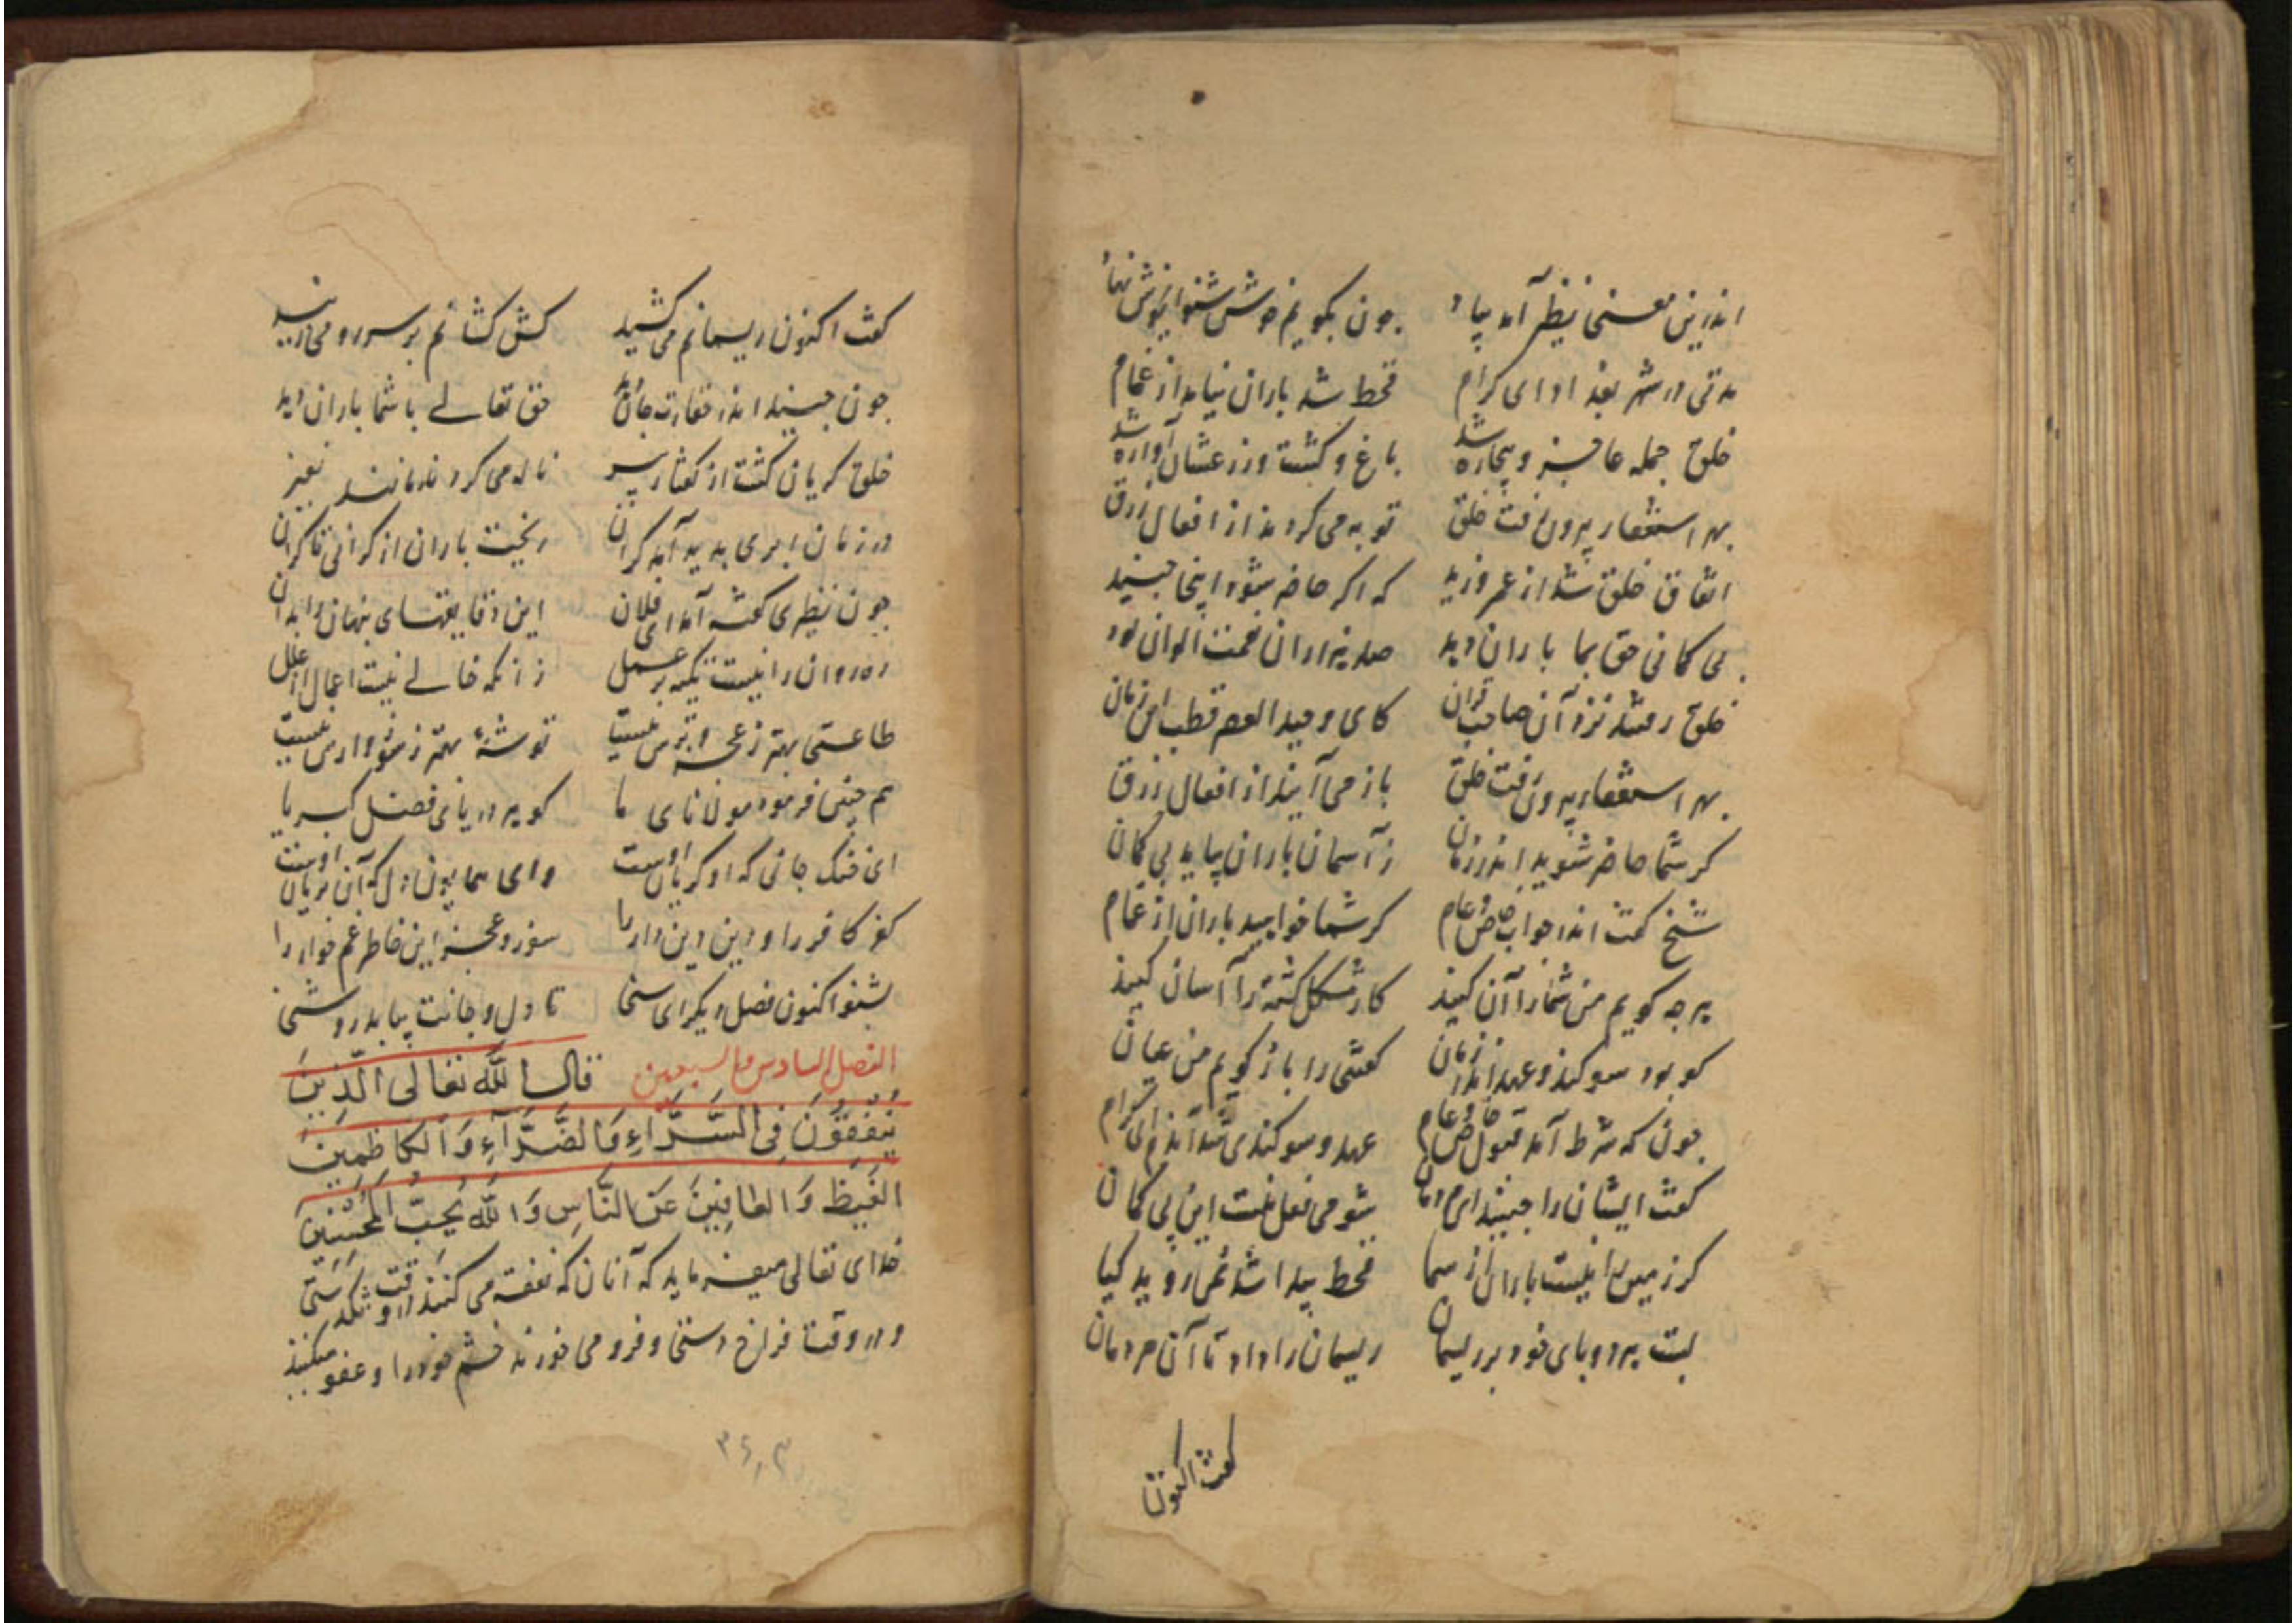 اندرین معنی نظیر آمد بیاد چون بگویم خوش شنو
مدتی در شهر بغداد ای کرام قحط شد باران نیامد از غمام
خلق جمله عاجز و بیچاره شد باغ و کشت و زرعشان آواره شد
بهر استغفار بیرون رفت خلق توبه می کردند از افعال زرق
اتفاق خلق شد از عمرو زید که اگر حاضر شود اینجا جنید
بی کمانی حق بما باران دهد صد هزاران نعمت الوان
خلق رفتند نزد آن صاحب قران کای وحید العصر قطب این زمان
بهر استغفار بیرون رفت خلق باز می آیند از افعال زرق
کر شما حاضر شوید اندر زمان ز آسمان باران بیاید بی کمان
شیخ کفت اندر جواب خاص و عام کر شما خواهید باران از غمام
هر چه کویم من شما را آن کنید کار مشکل کشته را آسان کنید
کو بود سوکند و عهد اندر زمان کفتنی را باز کویم من عیان
چون که شرط آمد قبول خاص و عام عهد و سوکندی شد آندم ای کرام
کفت ایشان را جنید ای مردمان شومی فعل منست این بی کمان
کر زمین را نیست باران از سما قحط پیدا شد نمی روید کیا
بست هر دو پای خود بر ریسمان ریسمان را داد تا آن مردمان
کفت اکنون
کفت اکنون ریسمانم می کشید کش کشانم بر سر و رو می برید
چون جنید اندر حقارت حق تعالی با شما باران دهد
خلق کریان کشت از کفتار پیر ناله می کردند مانند نفیر
در زمان ابری پدید آمد کران ریخت باران از کرانی تا کران
چون نظیری کفته آمد ای فلان این دقایقهای پنهان را بدان
ره روان را نیست تکیه بر عمل زانکه خالی نیست اعمال از علل
طاعتی بهتر ز عجز و ترس نیست توشهٔ بهتر ز سوز و ارس نیست
هم چنین فرمود مولانای ما کوهر دریای فضل کبریا
ای خنک جانی که او کریان اوست وای همایون دل که آن بریان اوست
کفر کافر را و دین دین دار را سوز و عجز این خاطر غم خوار را
بشنو اکنون فصل دیکر ای سخا تا دل و جانت بیابد روشنی
الفصل السادس و السبعین قال الله تعالی الَّذِينَ
يُنْفِقُونَ فِي السَّرَّاءِ وَالضَّرَّاءِ وَالْكَاظِمِينَ
الْغَيْظَ وَالْعَافِينَ عَنِ النَّاسِ وَاللَّهُ يُحِبُّ الْمُحْسِنِينَ
خدای تعالی میفرماید که آنان که نفقه می کنند در وقت تنکدستی
و در وقت فراخ دستی و فرو می خورند خشم خود را و عفو میکنند